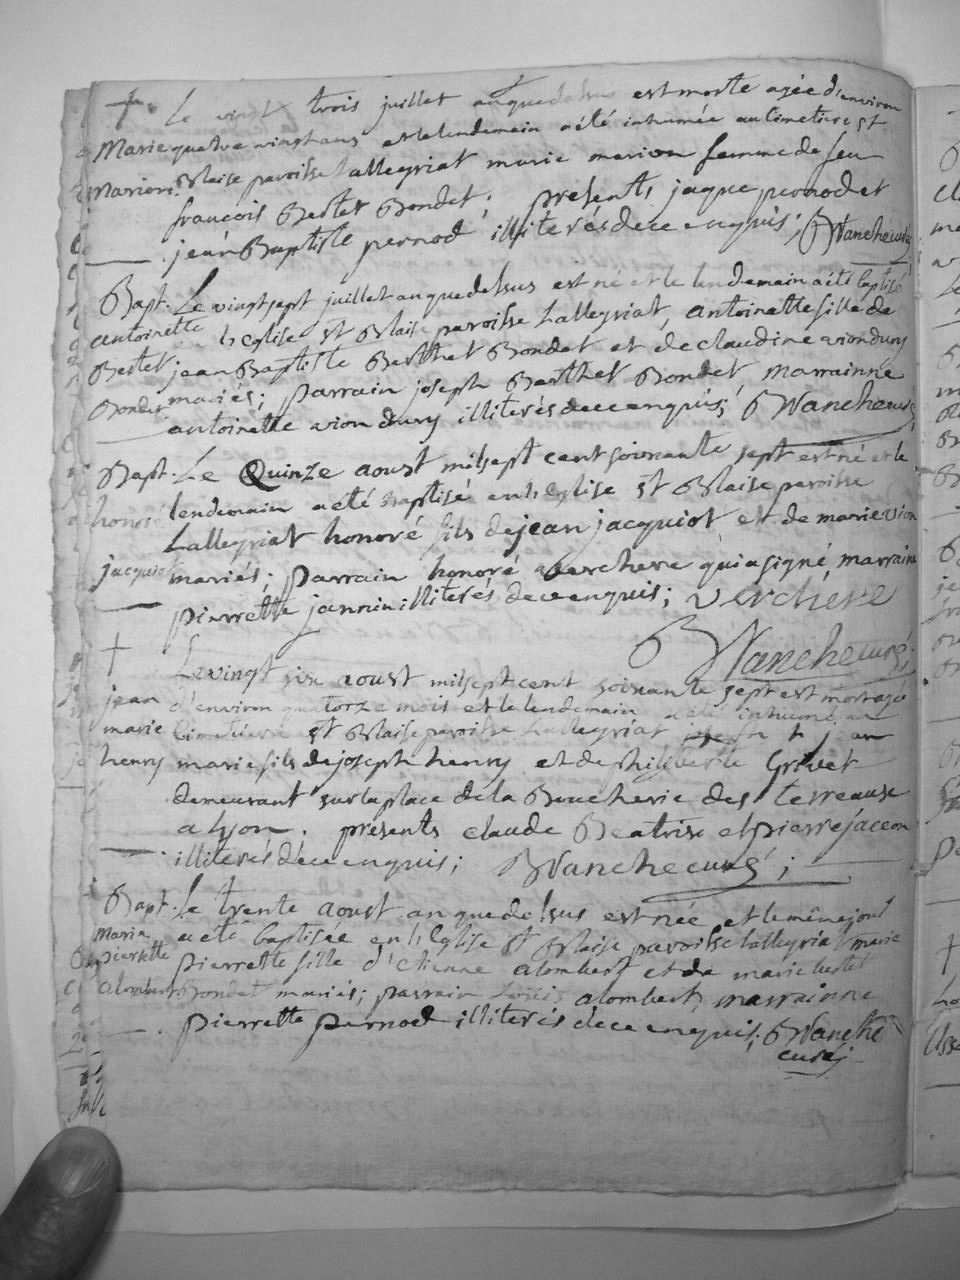 +. Le vingt trois juillet anquedelsus est morte agée d'environ
Marie quatre vingt ans et le lendemain a été inhumée au cimetiere st
marion. Blaise paroisse Lalleyriat marie marion femme de feu
françois Bertet Bondet; présents, jaque pernod et
jean Baptiste pernod illiterés de ce enquis; Blanche curé
Bapt. Le vingt sept juillet anquedelsus est né et le lendemain a été baptisé
antoinette h eglise st Blaise paroisse Lalleyriat, antoinette fille de
Bertet jean Baptiste Berthet Bondet et de claudine viondury
Bondet mariés; parrain joseph Berthet Bondet, marrainne
antoinette viondury illiterés de ce enquis; Blanche curé
Bapt. Le Quinze aoust mil sept cent soixante sept est né et le
honoré lendemain a été baptisé en h eglise st Blaise paroisse
Lalleyriat honoré fils de jean jacquiot et de marie vion
jacquiot mariés; parrain honoré verchere qui a signé, marraine
pierrette jannin illiterés de ce enquis; verchere
Blanche curé
+ Le vingt six aoust mil sept cent soixante sept est mort agé
jean d'environ quatorze mois et le lendemain a été inhumé au
marie Cimetiere st Blaise paroisse Lalleyriat jean
henry marie fils de joseph henry et de philiberte Grivet
demeurant sur la place de la Boucherie des terreaux
a lyon. présents claude Beatrix et pierre jaceon
illiterés de ce enquis; Blanche curé;
Bapt. Le trente aoust anquedelsus est née et le même jour
Maria a eté baptisée en h Eglise st Blaise paroisse Lalleyriat marie
pierrette pierrette fille d'etienne alombert et de marie bertet
alombert Bondet mariés; parrain alombert, marrainne
pierrette pernod illiterés de ce enquis; Blanche
curé;